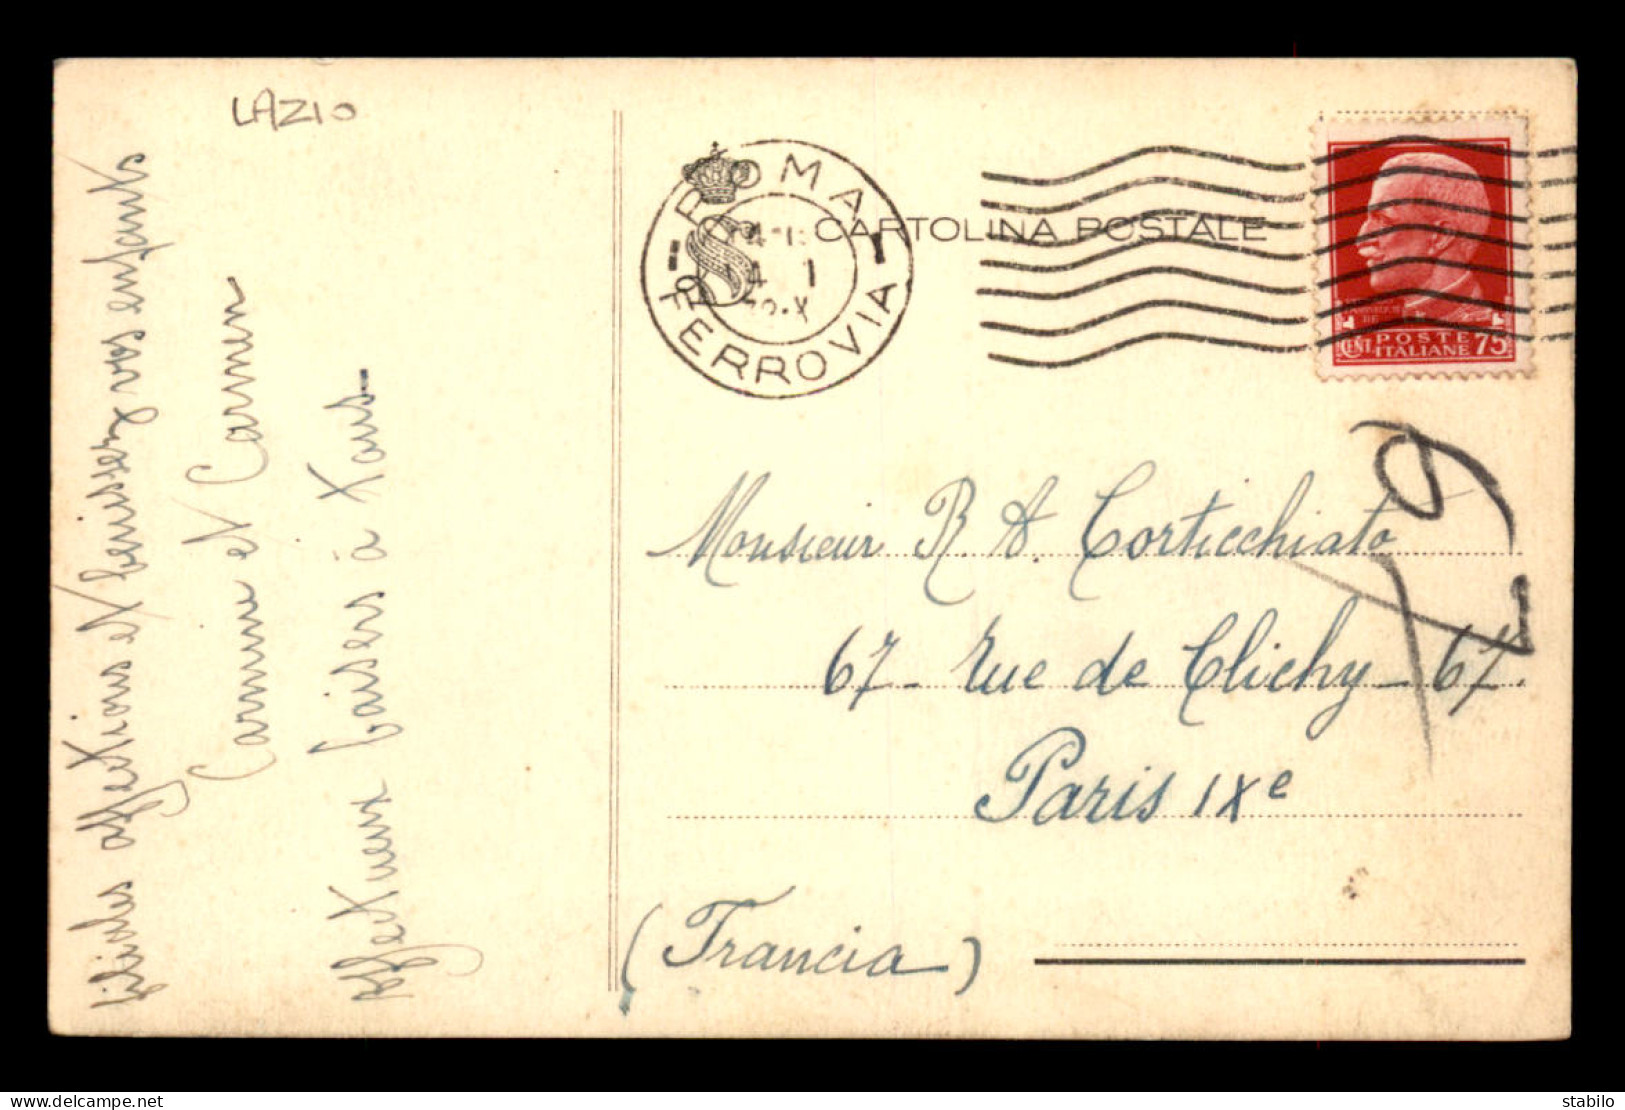 LAZIO
filiales affections et baisers vos enfants
Carmine et Carmen
affectueux baisers à
ROMA
FERROVIA
CARTOLINA POSTALE
POSTE
CENT. ITALIANE 75
Monsieur R. A. Corticchiato
67 - rue de Clichy - 67.
Paris IXe
(Francia)
www.delcampe.net
stabilo